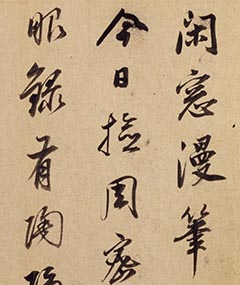 閑窓漫筆
今日撿周密
眼錄有陶